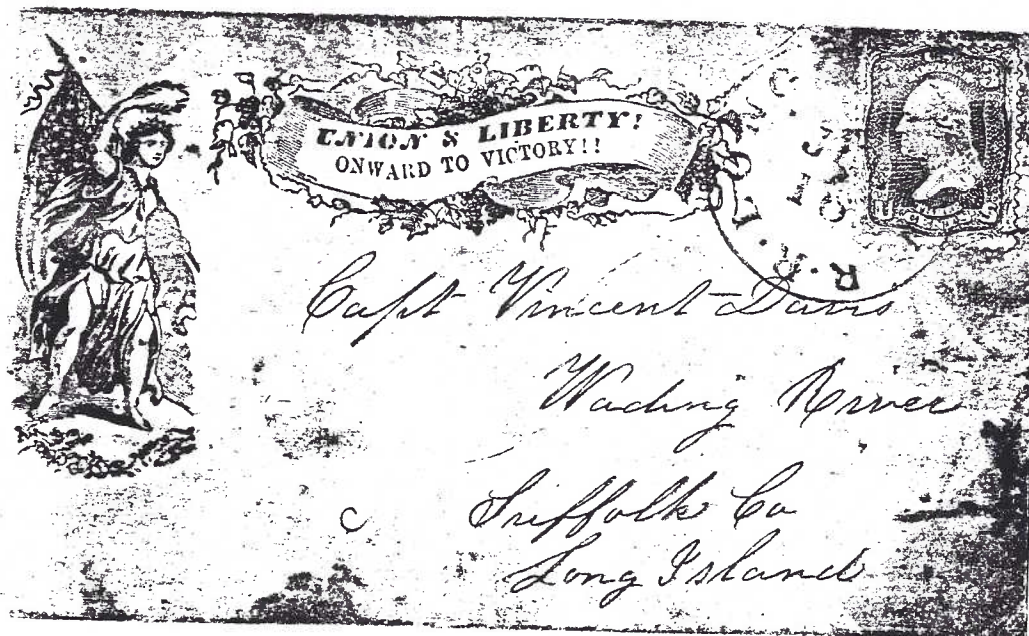 UNION & LIBERTY!
ONWARD TO VICTORY!!
Capt Vincent Davis
Wading River
Suffolk Co
Long Island